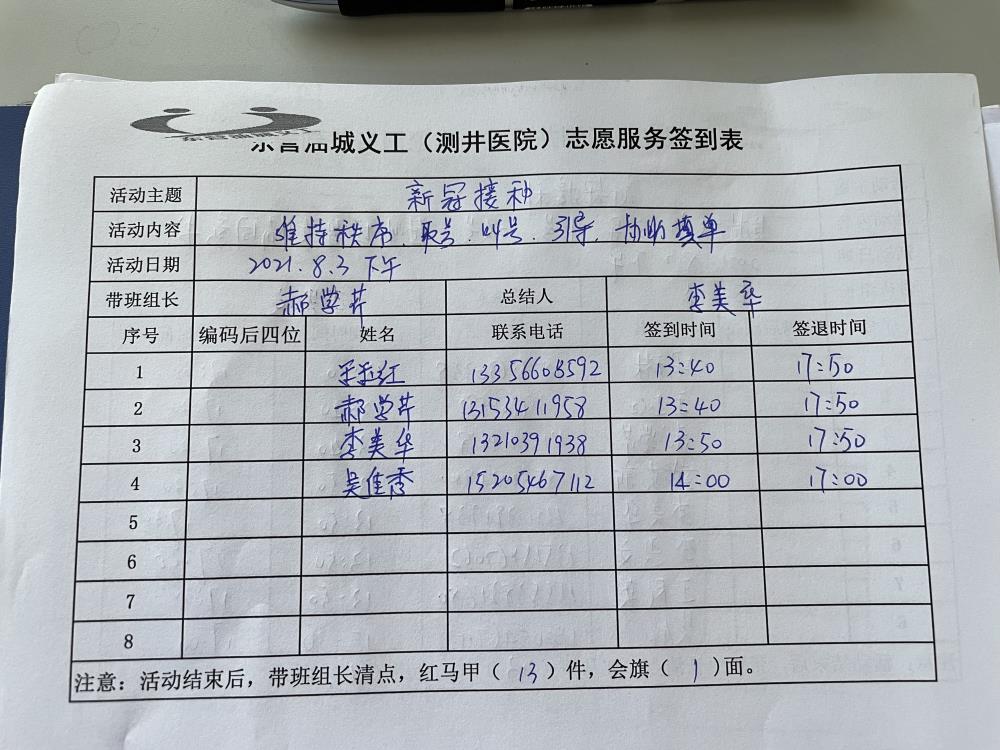 东营油城义工（测井医院）志愿服务签到表
活动主题 新冠接种
活动内容 维持秩序、取号、叫号、引导、协助填单
活动日期 2021.8.3 下午
带班组长 郝学芹 总结人 李美华
序号 编码后四位 姓名 联系电话 签到时间 签退时间
1 13356608592 13:40 17:50
2 郝学芹 13153411958 13:40 17:50
3 李美华 13210391938 13:50 17:50
4 吴佳秀 15205467112 14:00 17:00
5
6
7
8
注意：活动结束后，带班组长清点，红马甲（13）件，会旗（1）面。